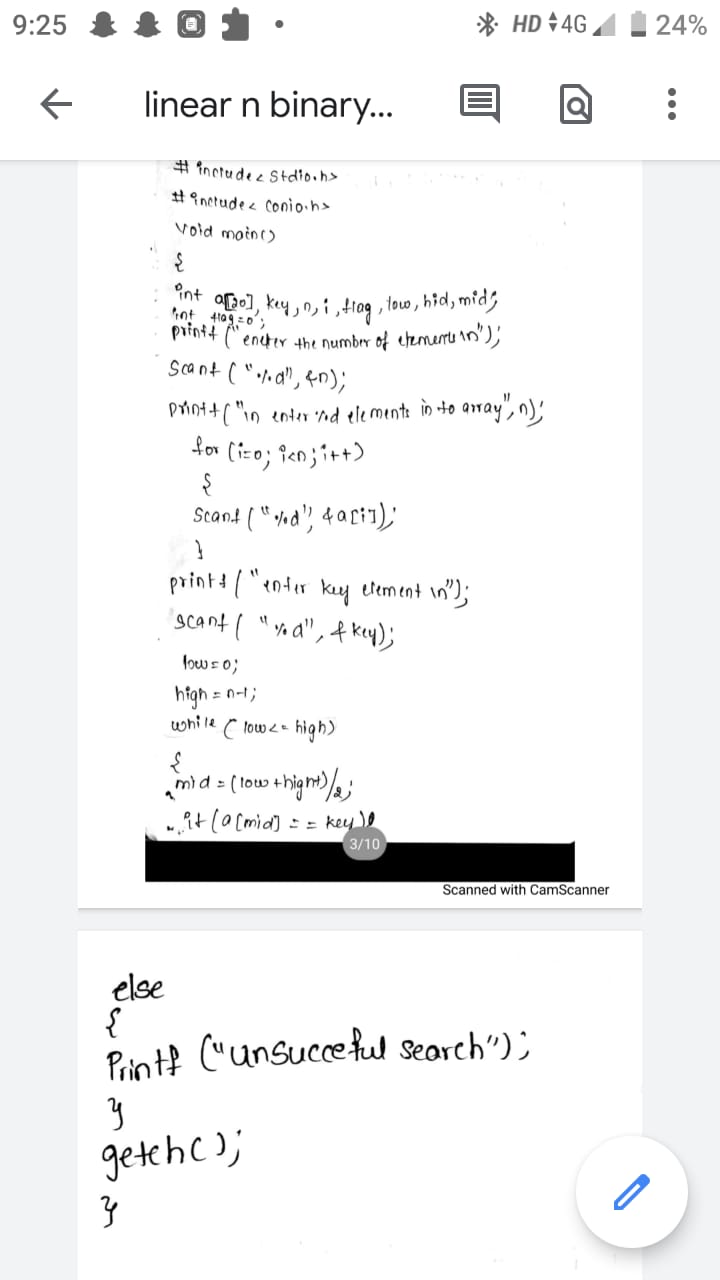 9:25
HD 4G 24%
linear n binary...
# include< stdio.h>
# include< conio.h>
void main()
{
int a[20], key, n, i, flag, low, hid, mid;
int flag=0;
printf ("enter the number of elements \n");
scanf ("%d", &n);
printf("\n enter %d elements in to array", n);
for (i=0; i<n; i++)
{
scanf ("%d", &a[i]);
}
printf ("enter key element \n");
scanf ( "%d", & key);
low=0;
high = n-1;
while ( low<= high)
{
mid = (low + hight)/2;
if (a[mid] == key)
3/10
Scanned with CamScanner
else
{
Printf ("unsucceful search");
}
getch();
}